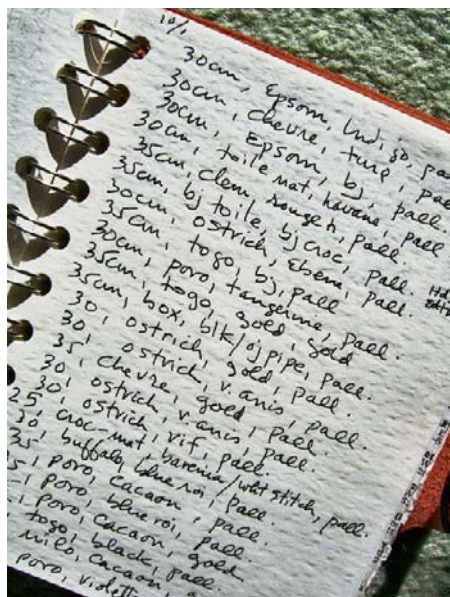 10/1
30cm, Epsom, Indigo, pa
30cm, Chevre, turq, pal
30cm, Epsom, bj, pall.
30cm, toile mat, havane, pall
35cm, clem, rouge h, pall
35cm, bj toile, bj croc, pall.
30cm, ostrich, Ebene, pall.
35cm, togo, bj, pall
30cm, poro, tangerine, pall.
35cm, togo, gold, gold
35cm, box, blk/oj pipe, pall.
30, ostrich, gold, pall.
30, ostrich, v. anis, pall.
35, chevre, gold, pall.
30, ostrich, v. anis, pall.
30, ostrich, vif, pall.
25, croc-mat, barenia/wht stitch, pall.
30, buffalo, blue roi, pall.
35, poro, cacaon, pall.
5, poro, blue roi, pall
poro, cacaon, gold.
togo, black, pall.
milo, cacaon,
poro, violett